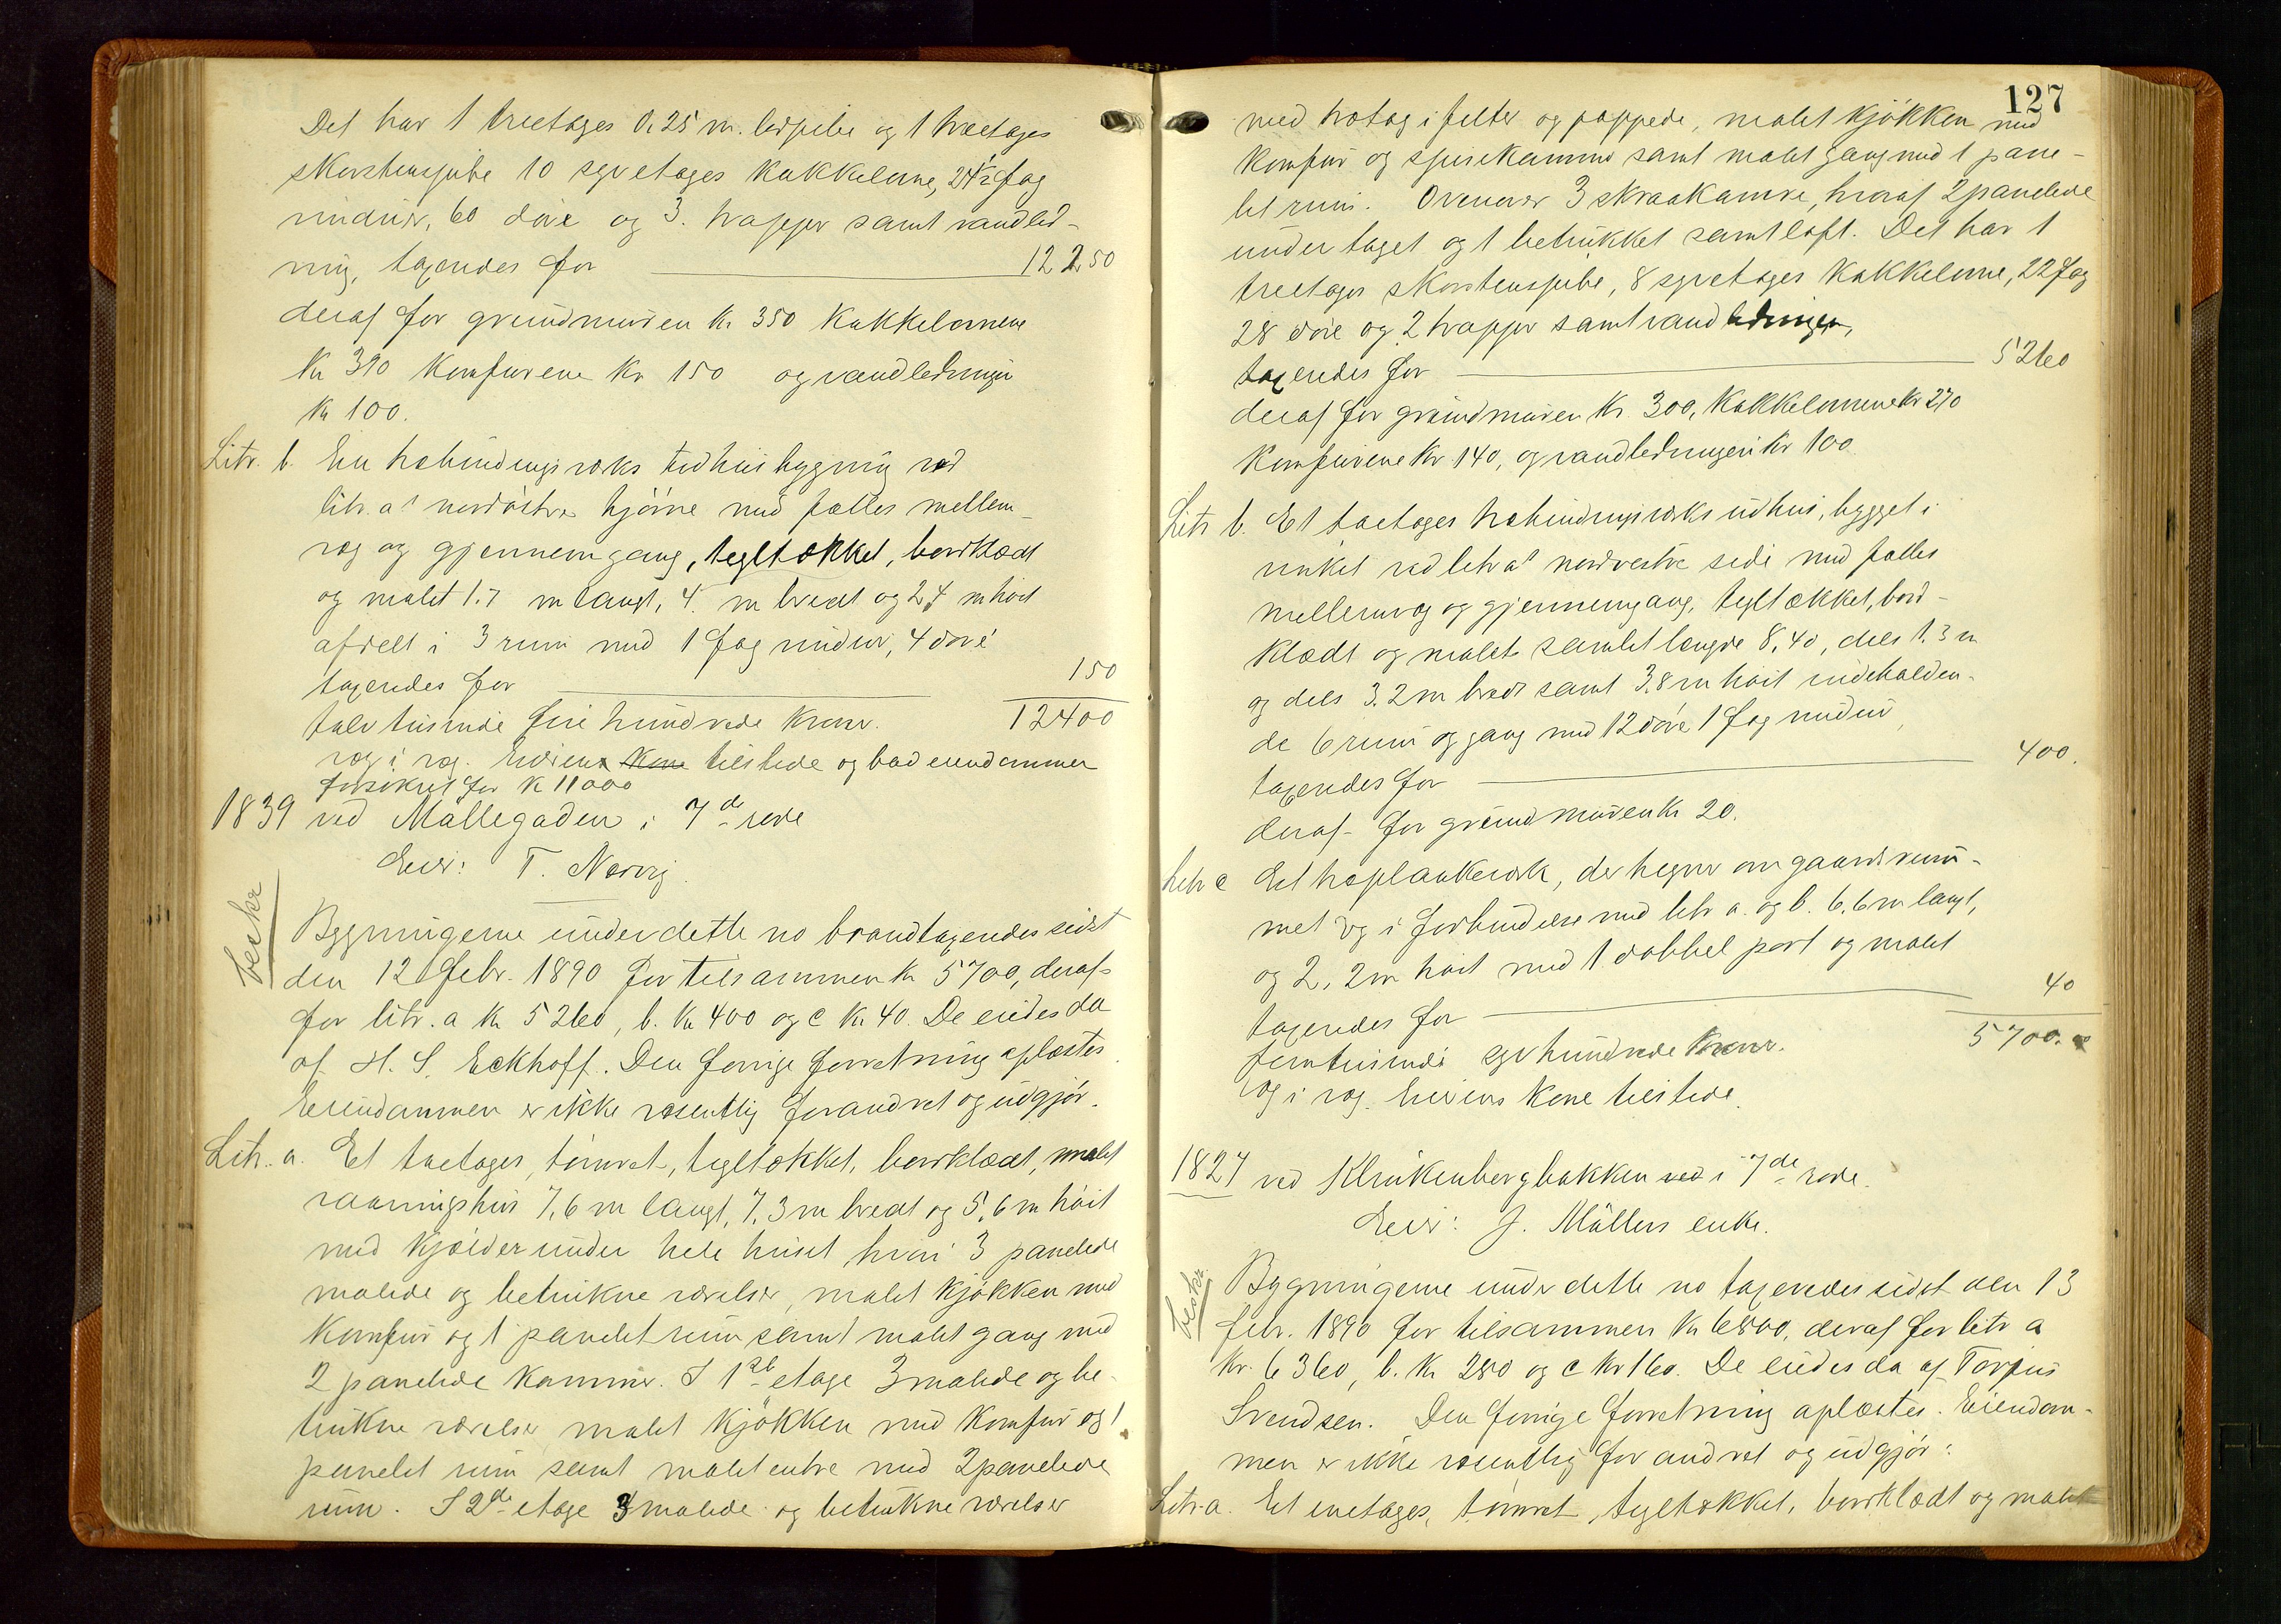 Det har 1 treetages 0,25 m. lerpibe og 1 træetages
skorstenspibe 10 syvetages kakkelovne, 24½ fag
vinduer, 60 døre og 3. trapper samt vandled-
ning, taxeredes for 12250
deraf for grundmuren kr 350 kakkelovnene
kr 390 komfurene kr 150 og vandledningen
kr 100.
Litr. b. En træbindingsværks udhusbygning ved
litr. a's nordøstre hjørne med fælles mellem-
væg og gjennemgang, tegltækket, bordklædt
og malet 1.7 m langt, 4. m bredt og 2,4 m høit
afdelt i 3 rum med 1 fag vinduer, 4 døre
taxeredes for 150
tolv tusinde fire hundrede kroner. 12400
væg i væg. Eieren kone tilstede og bad eiendommen
forsikret for k 11000
1839 ved Møllegaden i 7de rode
Eier: T. Nærvig.
beskr
Bygningerne under dette no brandtaxeredes sidst
den 12 febr. 1890 for tilsammen kr 5700, deraf
for litr. a kr 5260, b. kr 400 og c kr 40. De eiedes da
af H. S. Eckhoff. Den forrige forretning oplæstes.
Eiendommen er ikke væsentlig forandret og udgjør.
Litr. a. Et toetages, tømret, tegltækket, bordklædt, malet
vaaningshus 7,6 m langt, 7,3 m bredt og 5,6 m høit
med kjælder under hele huset, hvori 3 panelede
malede og betrukne værelser, malet kjøkken med
komfur og 1 panelet rum samt malet gang med
2 panelede kammer. I 1ste etage 3 malede og be-
trukne værelser malet kjøkken med komfur og 1
panelet rum samt malet entre med 2 panelede
rum. I 2de etage 3 malede og betrukne værelser
127
med trætag i felter og pappede, malet kjøkken med
komfur og spisekammer samt malet gang med 1 pane-
let rum. Ovenover 3 skraakamre, hvoraf 2 panelede
under taget og 1 betrukket samt loft. Det har 1
treetages skorstenspibe, 8 syvetages kakkelovne, 22 fag
28 døre og 2 trapper samt vandledningen,
taxeredes for 5260
deraf for grundmuren kr. 300, kakkelovnene kr 270
komfurene kr 140, og vandledningen kr 100
Litr b. Et toetages træbindingsværks udhus, bygget i
vinkel ved litr a's nordvestre side med fælles
mellemvæg og gjennemgang, tegltækket, bord-
klædt og malet samlet længde 8,40, dels 1.3 m
og dels 3.2 m bredt samt 3.8 m høit indeholden-
de 6 rum og gang med 12 døre 1 fag vinduer,
taxeredes for 400.
deraf for grundmuren kr 20.
Litr c Et træplankeværk, der hegner om gaardsrum-
met og i forbindelse med litr a. og b. 6,6 m langt,
og 2,2 m høit med 1 dobbel port og malet
taxeredes for 40
femtusinde syvhundrede kroner. 5700.
væg i væg. Eierens kone tilstede.
1827 ved Klinkenbergbakken ved i 7de rode.
Eier: J. Møllers enke.
beskr.
Bygningerne under dette no taxeredes sidst den 13
febr. 1890 for tilsammen kr 6800, deraf for litr a
kr. 6360, b. kr 280 og c kr 160. De eiedes da af Torjus
Svendsen. Den forrige forretning oplæstes. Eiendom-
men er ikke væsentlig forandret og udgjør:
Litr. a. Et enetages, tømret, tegltækket, bordklædt og malet